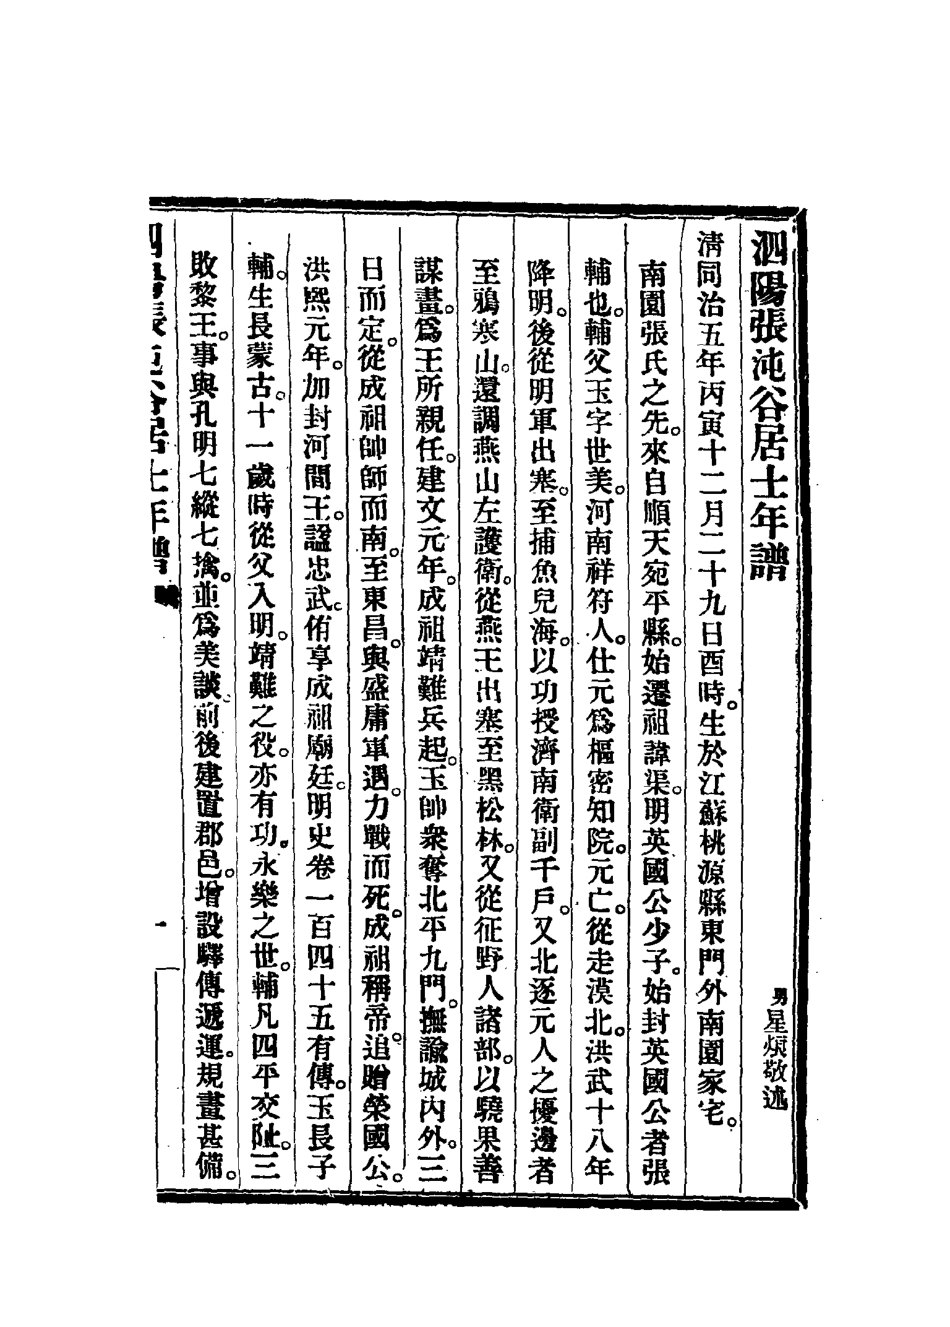 泗陽張沌谷居士年譜
男星烺敬述
淸同治五年丙寅十二月二十九日酉時。生於江蘇桃源縣東門外南園家宅。
南園張氏之先。來自順天宛平縣。始遷祖諱渠。明英國公少子。始封英國公者張
輔也。輔父玉字世美。河南祥符人。仕元爲樞密知院。元亡。從走漠北。洪武十八年
降明。後從明軍出塞。至捕魚兒海。以功授濟南衛副千戶。又北逐元人之擾邊者
至鴉寒山。還調燕山左護衛。從燕王出塞至黑松林。又從征野人諸部。以驍果善
謀畫。爲王所親任。建文元年。成祖靖難兵起。玉帥衆奪北平九門。撫諭城內外。三
日而定。從成祖帥師而南。至東昌。與盛庸軍遇。力戰而死。成祖稱帝。追贈榮國公。
洪熙元年。加封河間王。諡忠武。侑享成祖廟廷。明史卷一百四十五有傳。玉長子
輔。生長蒙古。十一歲時從父入明。靖難之役。亦有功。永樂之世。輔凡四平交阯。三
敗黎王。事與孔明七縱七擒。並爲美談。前後建置郡邑。增設驛傳遞運。規畫甚備。
泗陽張沌谷居士年譜
一